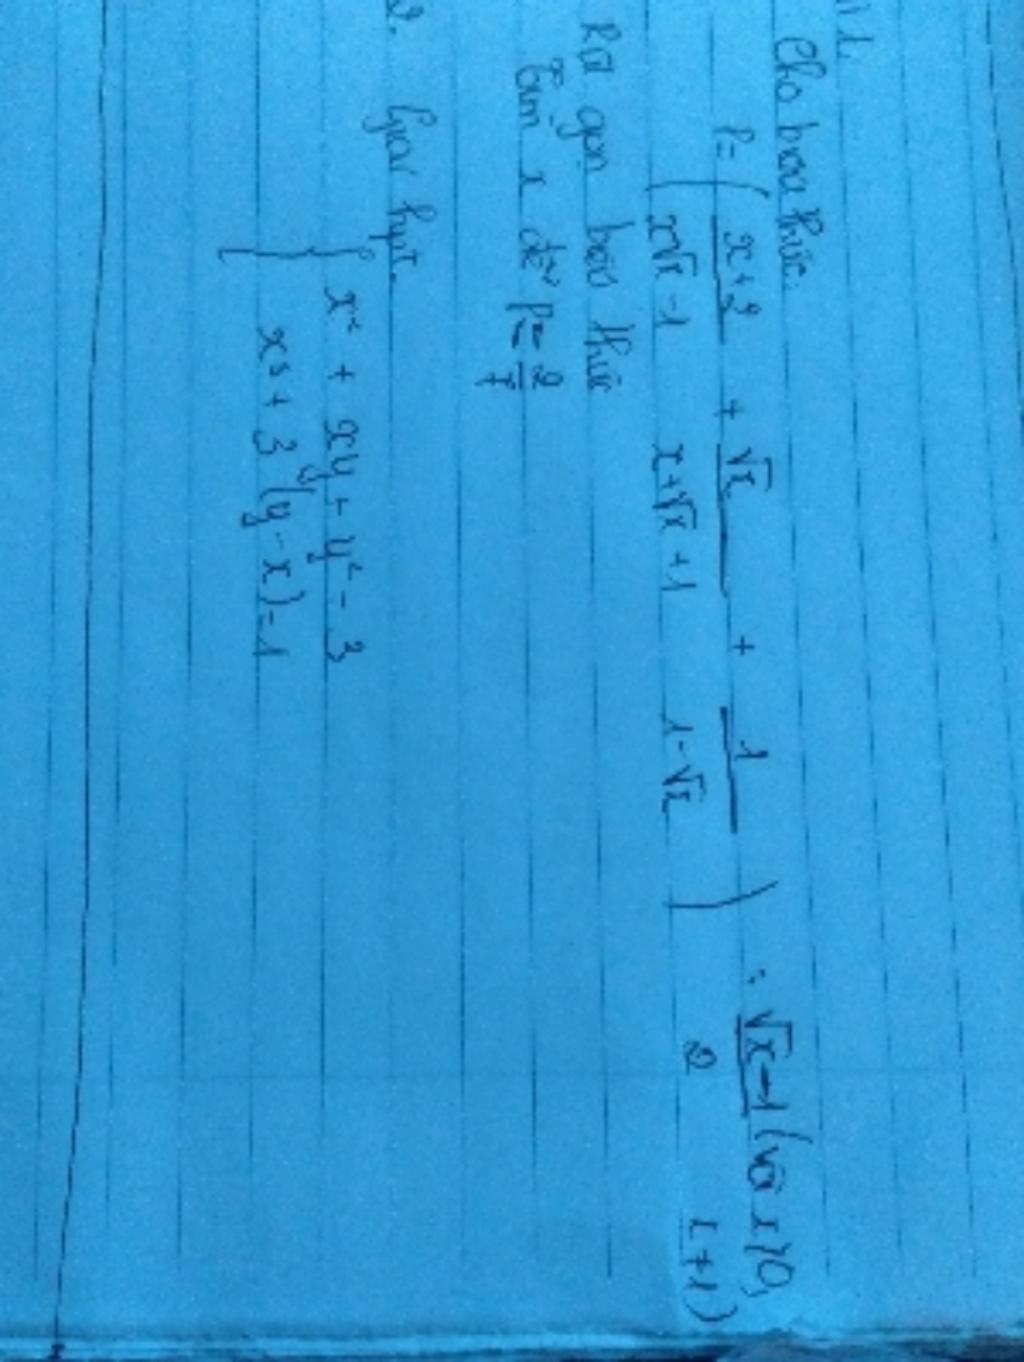 1.
Cho biểu thức:
P = ( \frac{x+2}{x\sqrt{x}-1} + \frac{\sqrt{x}}{x+\sqrt{x}+1} + \frac{1}{1-\sqrt{x}} ) : \frac{\sqrt{x}-1}{2} (với x>0,
x+1)
Rút gọn biểu thức
Tìm x để P = \frac{2}{7}
2. Giải hpt.
{ x² + xy + y² = 3
x³ + 3(y-x) = 1